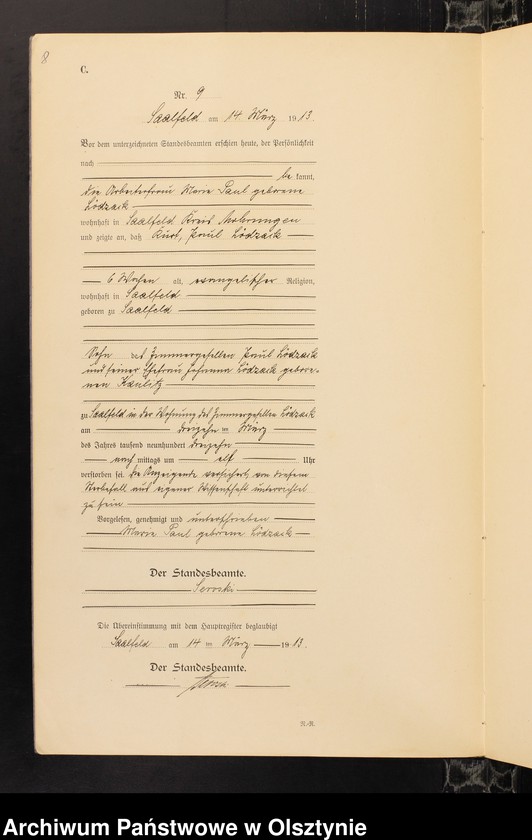 8
C.
Nr. 9
Saalfeld am 14 März 1913
Vor dem unterzeichneten Standesbeamten erschien heute, der Persönlichkeit
nach
be kannt,
die Arbeiterfrau Marie Paul geborene
Lödzack
wohnhaft in Saalfeld Kreis Mohrungen
und zeigte an, daß Kurt, Paul Lödzack
6 Wochen alt, evangelischer Religion,
wohnhaft in Saalfeld
geboren zu Saalfeld
Sohn des Zimmergesellen Paul Lödzack
und seiner Ehefrau Johanna Lödzack gebore-
nen Kanlitz
zu Saalfeld in der Wohnung des Zimmergesellen Lödzack
am dreizehn ten März
des Jahres tausend neunhundert dreizehn
nach mittags um elf Uhr
verstorben sei. Die Anzeigende versichert, von diesem
Sterbefall aus eigener Wissenschaft unterrichtet
zu sein
Vorgelesen, genehmigt und unterschrieben
Marie Paul geborene Lödzack
Der Standesbeamte.
Die Übereinstimmung mit dem Hauptregister beglaubigt
Saalfeld am 14 ten März 1913.
Der Standesbeamte.
R.-R.
Archiwum Państwowe w Olsztynie